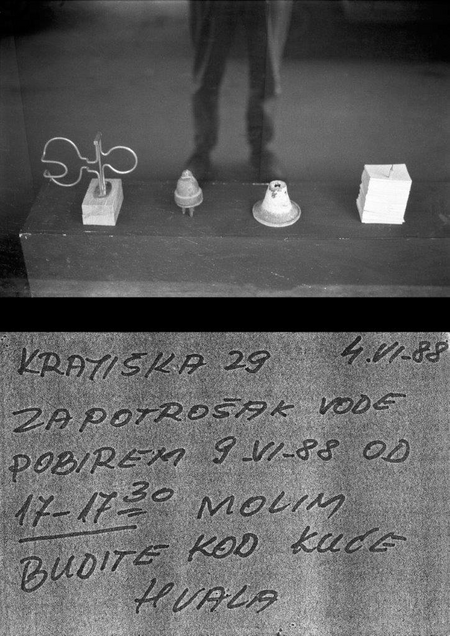 KRATIŠKA 29 4.VI-88
ZA POTROŠAK VODE
POBIREM 9.VI-88 OD
17-17³⁰ MOLIM
BUDITE KOD KUĆE
HVALA